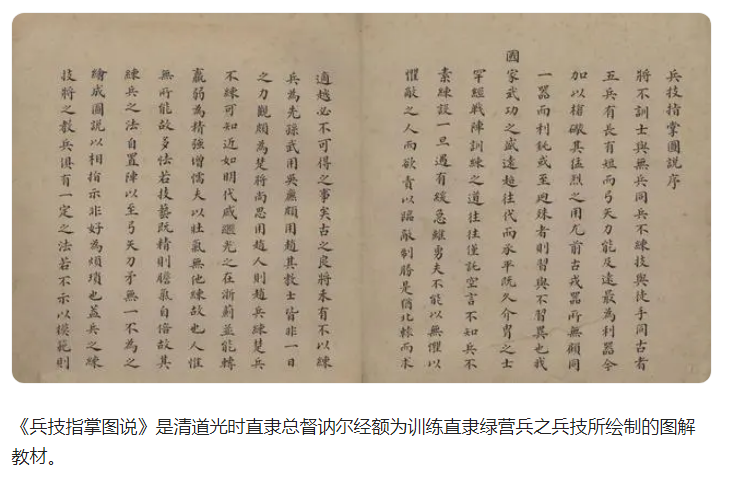 兵技指掌圖說序
將不訓士與無兵同兵不練技與徒手同古者
五兵有長有短而弓矢力能及遠最為利器今
加以槍礮其猛烈之用尤前古戎器所無顧同
一器而利鈍或至迥殊者則習與不習異也我
國家武功之盛遠超往代而承平既久介冑之士
罕經戰陣訓練之道往往僅託空言不知兵不
素練設一旦遇有緩急雖勇夫不能以無懼以
懼敵之人而欲責以臨敵制勝是猶北轅而求
適越必不可得之事矣古之良將未有不以練
兵為先孫武用吳廉頗用趙其教士皆非一日
之力觀頗為楚將尚思用趙人則趙兵練楚兵
不練可知近如明代戚繼光之在浙薊並能轉
羸弱為精強增懦夫以壯氣無他練故也人惟
無所能故多怯若技藝既精則膽氣自倍故其
練兵之法自置陣以至弓矢刀矛無一不為之
繪成圖說以相指示非好為煩瑣也蓋兵之練
技將之教兵俱有一定之法若不示以模範則
《兵技指掌图说》是清道光时直隶总督讷尔经额为训练直隶绿营兵之兵技所绘制的图解
教材。